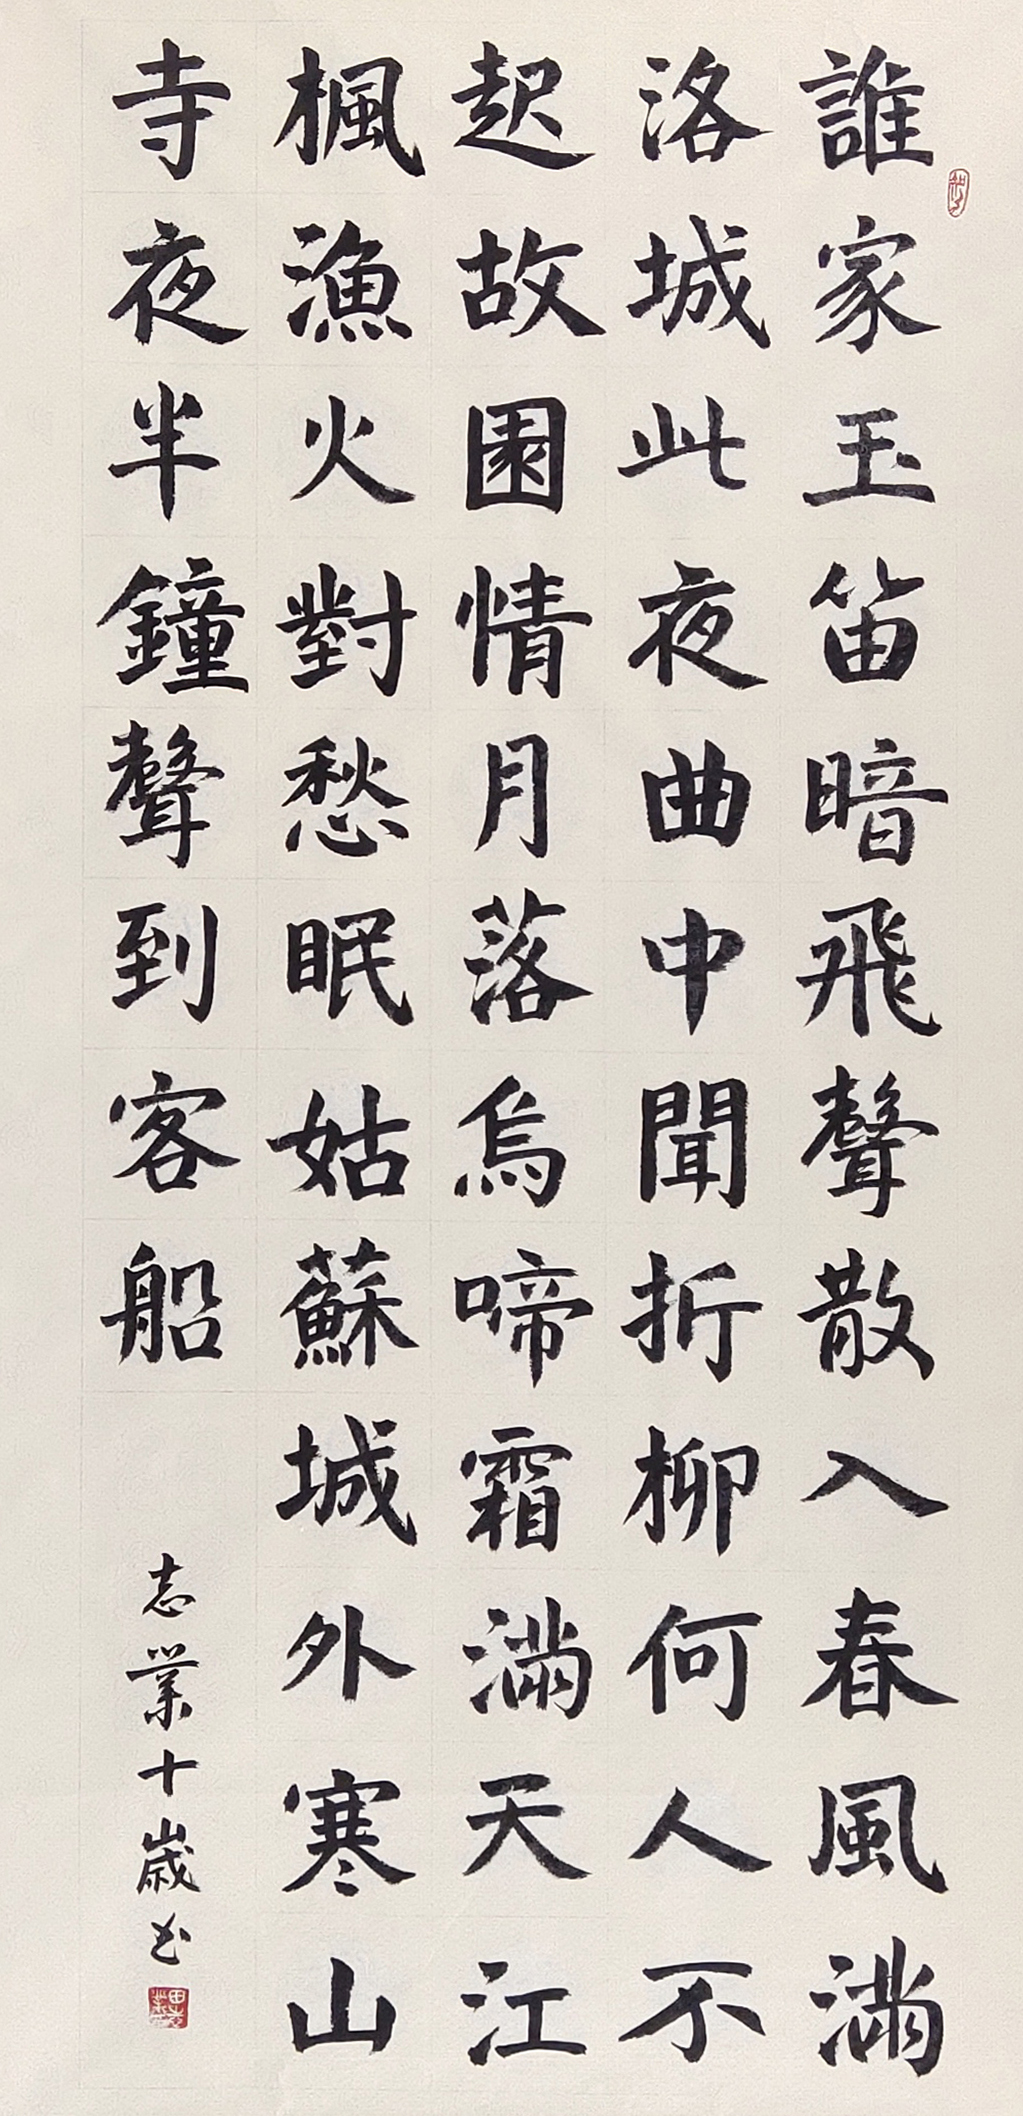 誰家玉笛暗飛聲散入春風滿
洛城此夜曲中聞折柳何人不
起故園情月落烏啼霜滿天江
楓漁火對愁眠姑蘇城外寒山
寺夜半鐘聲到客船
志業十歲书